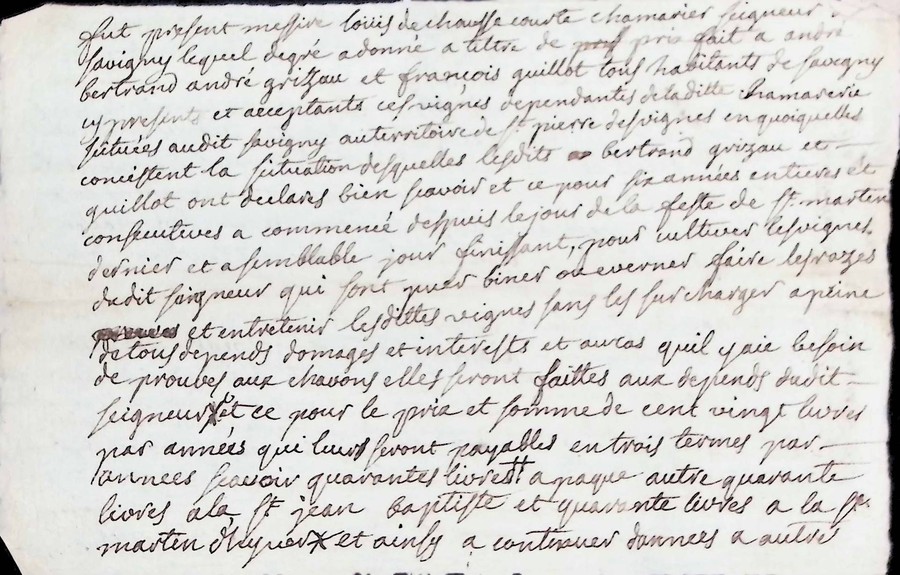 fut present messire louis de chausse courte chamarier seigneur
savigny lequel degré a donné a tiltre de prix fait a andré
bertrand andré grizau et françois guillot tous habitants de savigny
cy presents et acceptants ces vignes dependantes de la ditte chamarerie
situées audit savigny au territoire de st pierre des vignes en quoi quelles
concistent la situation desquelles lesdits bertrand grizau et
guillot ont declarés bien scavoir et ce pour six années entieres et
consecutives a commencé despuis le jour de la feste de st marten
dernier et a semblable jour finissant, pour cultiver les vignes
dudit seigneur qui sont puer biner ou everner faire les razes
et entretenir lesdittes vignes sans les surcharger a peine
de tous depends domages et interests et au cas quil y aie besoin
de prouves aux chavons elles seront faittes aux depends dudit
seigneur et ce pour le prix et somme de cent vingt livres
par années qui leurs seront payables en trois termes par
annees scavoir quarantes livres a paque autre quarante
livres a la st jean baptiste et quarante livres a la st
marten d'hyver et ainsy a continuer dannées a autre